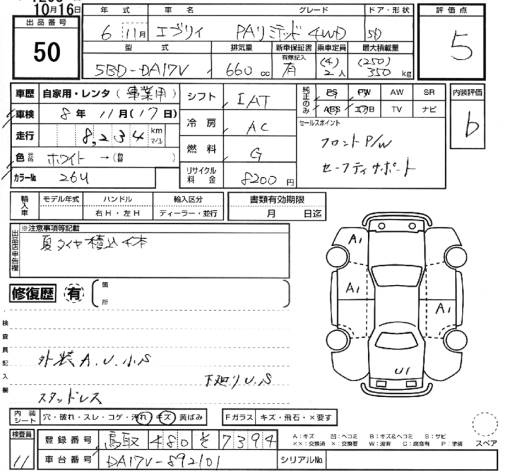 10月16日
出品番号
50
年式 車名 グレード ドア・形状
6年11月 エブリイ PAリミテッド 4WD 5D
型式 排気量 新車保証書 乗車定員 最大積載量
5BD-DA17V 660cc 有無記入 有 (4) 2人 (250) 350kg
評価点
5
車歴 自家用・レンタ(事業用)
車検 8年11月(17日)
走行 8,234 km マイル
色 ホワイト→( )
カラーNo 26U
シフト IAT
冷房 AC
燃料 G
リサイクル料金 8200円
純正のみ PS PW AW SR
ABS エアB TV ナビ
セールスポイント
フロントP/W
セーフティサポート
内装評価
b
輸入車 モデル年式 ハンドル 輸入区分
年 右H・左H ディーラー・並行
書類有効期限
月 日迄
出品店申告欄
※注意事項等記載
夏タイヤ積込4本
修復歴 有 箇所
検査員記入欄
外装A.U.小S
下廻りU.S
スタッドレス
A1
A1
A1
U1
内装シート 穴・破れ・スレ・コゲ・汚れ・キズ・黄ばみ
Fガラス キズ・飛石・×要す
検査員
11
登録番号 鳥取 480 を 7394
車台番号 DA17V-892101
シリアルNo
A:キズ U:ヘコミ B:キズ&ヘコミ S:サビ
××:交換済 ×:交換要 W:波消 C:腐食有 P:塗装
スペア